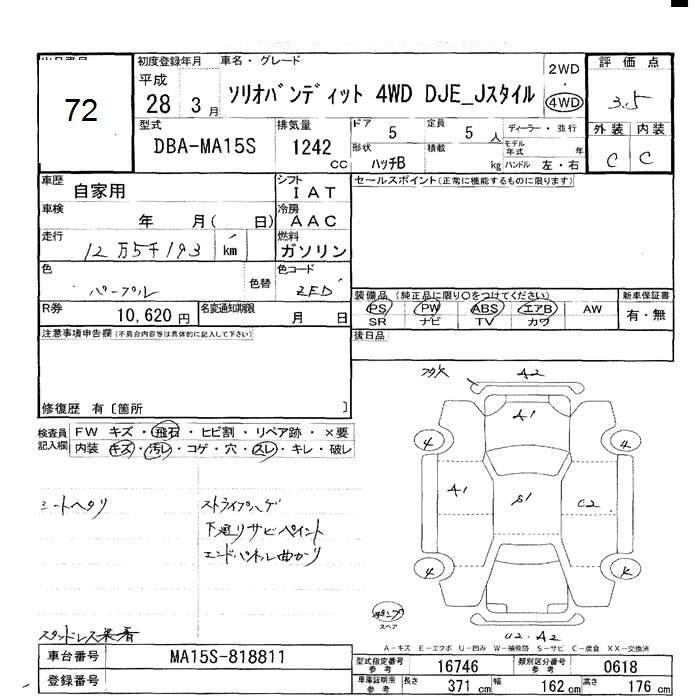 72
初度登録年月
平成
28 3月
車名・グレード
ソリオバンディット 4WD DJE_Jスタイル
2WD
4WD
評価点
3.5
外装 内装
C C
型式
DBA-MA15S
排気量
1242
CC
ドア
5
定員
5 人
ディーラー・並行
形状
ハッチB
積載
kg
モデル年式
年
ハンドル 左・右
車歴
自家用
シフト
I A T
セールスポイント(正常に機能するものに限ります)
車検
年 月( 日)
冷房
A A C
走行
12万5千193 km
燃料
ガソリン
色
パープル
色替
色コード
ZED
装備品 (純正品に限り○をつけてください)
新車保証書
PS PW ABS エアB AW
有・無
SR ナビ TV カワ
R券
10,620 円
名変通知期限
月 日
後日品
注意事項申告欄(不具合内容等は具体的に記入して下さい)
修復歴 有〔箇所 〕
検査員記入欄
FW キズ・飛石・ヒビ割・リペア跡・×要
内装 キズ・汚レ・コゲ・穴・スレ・キレ・破レ
シートヘタリ
ストライプハゲ
下廻リサビペイント
エンドパネル曲がり
A2
A1
4 4
A1 S1 C2
4
スペア
U2.A2
A-キズ E-エクボ U-凹み W-補修跡 S-サビ C-腐食 XX-交換済
車台番号
MA15S-818811
登録番号
型式指定番号参考
16746
類別区分番号参考
0618
車庫証明用参考
長さ 371 cm
幅 162 cm
高さ 176 cm